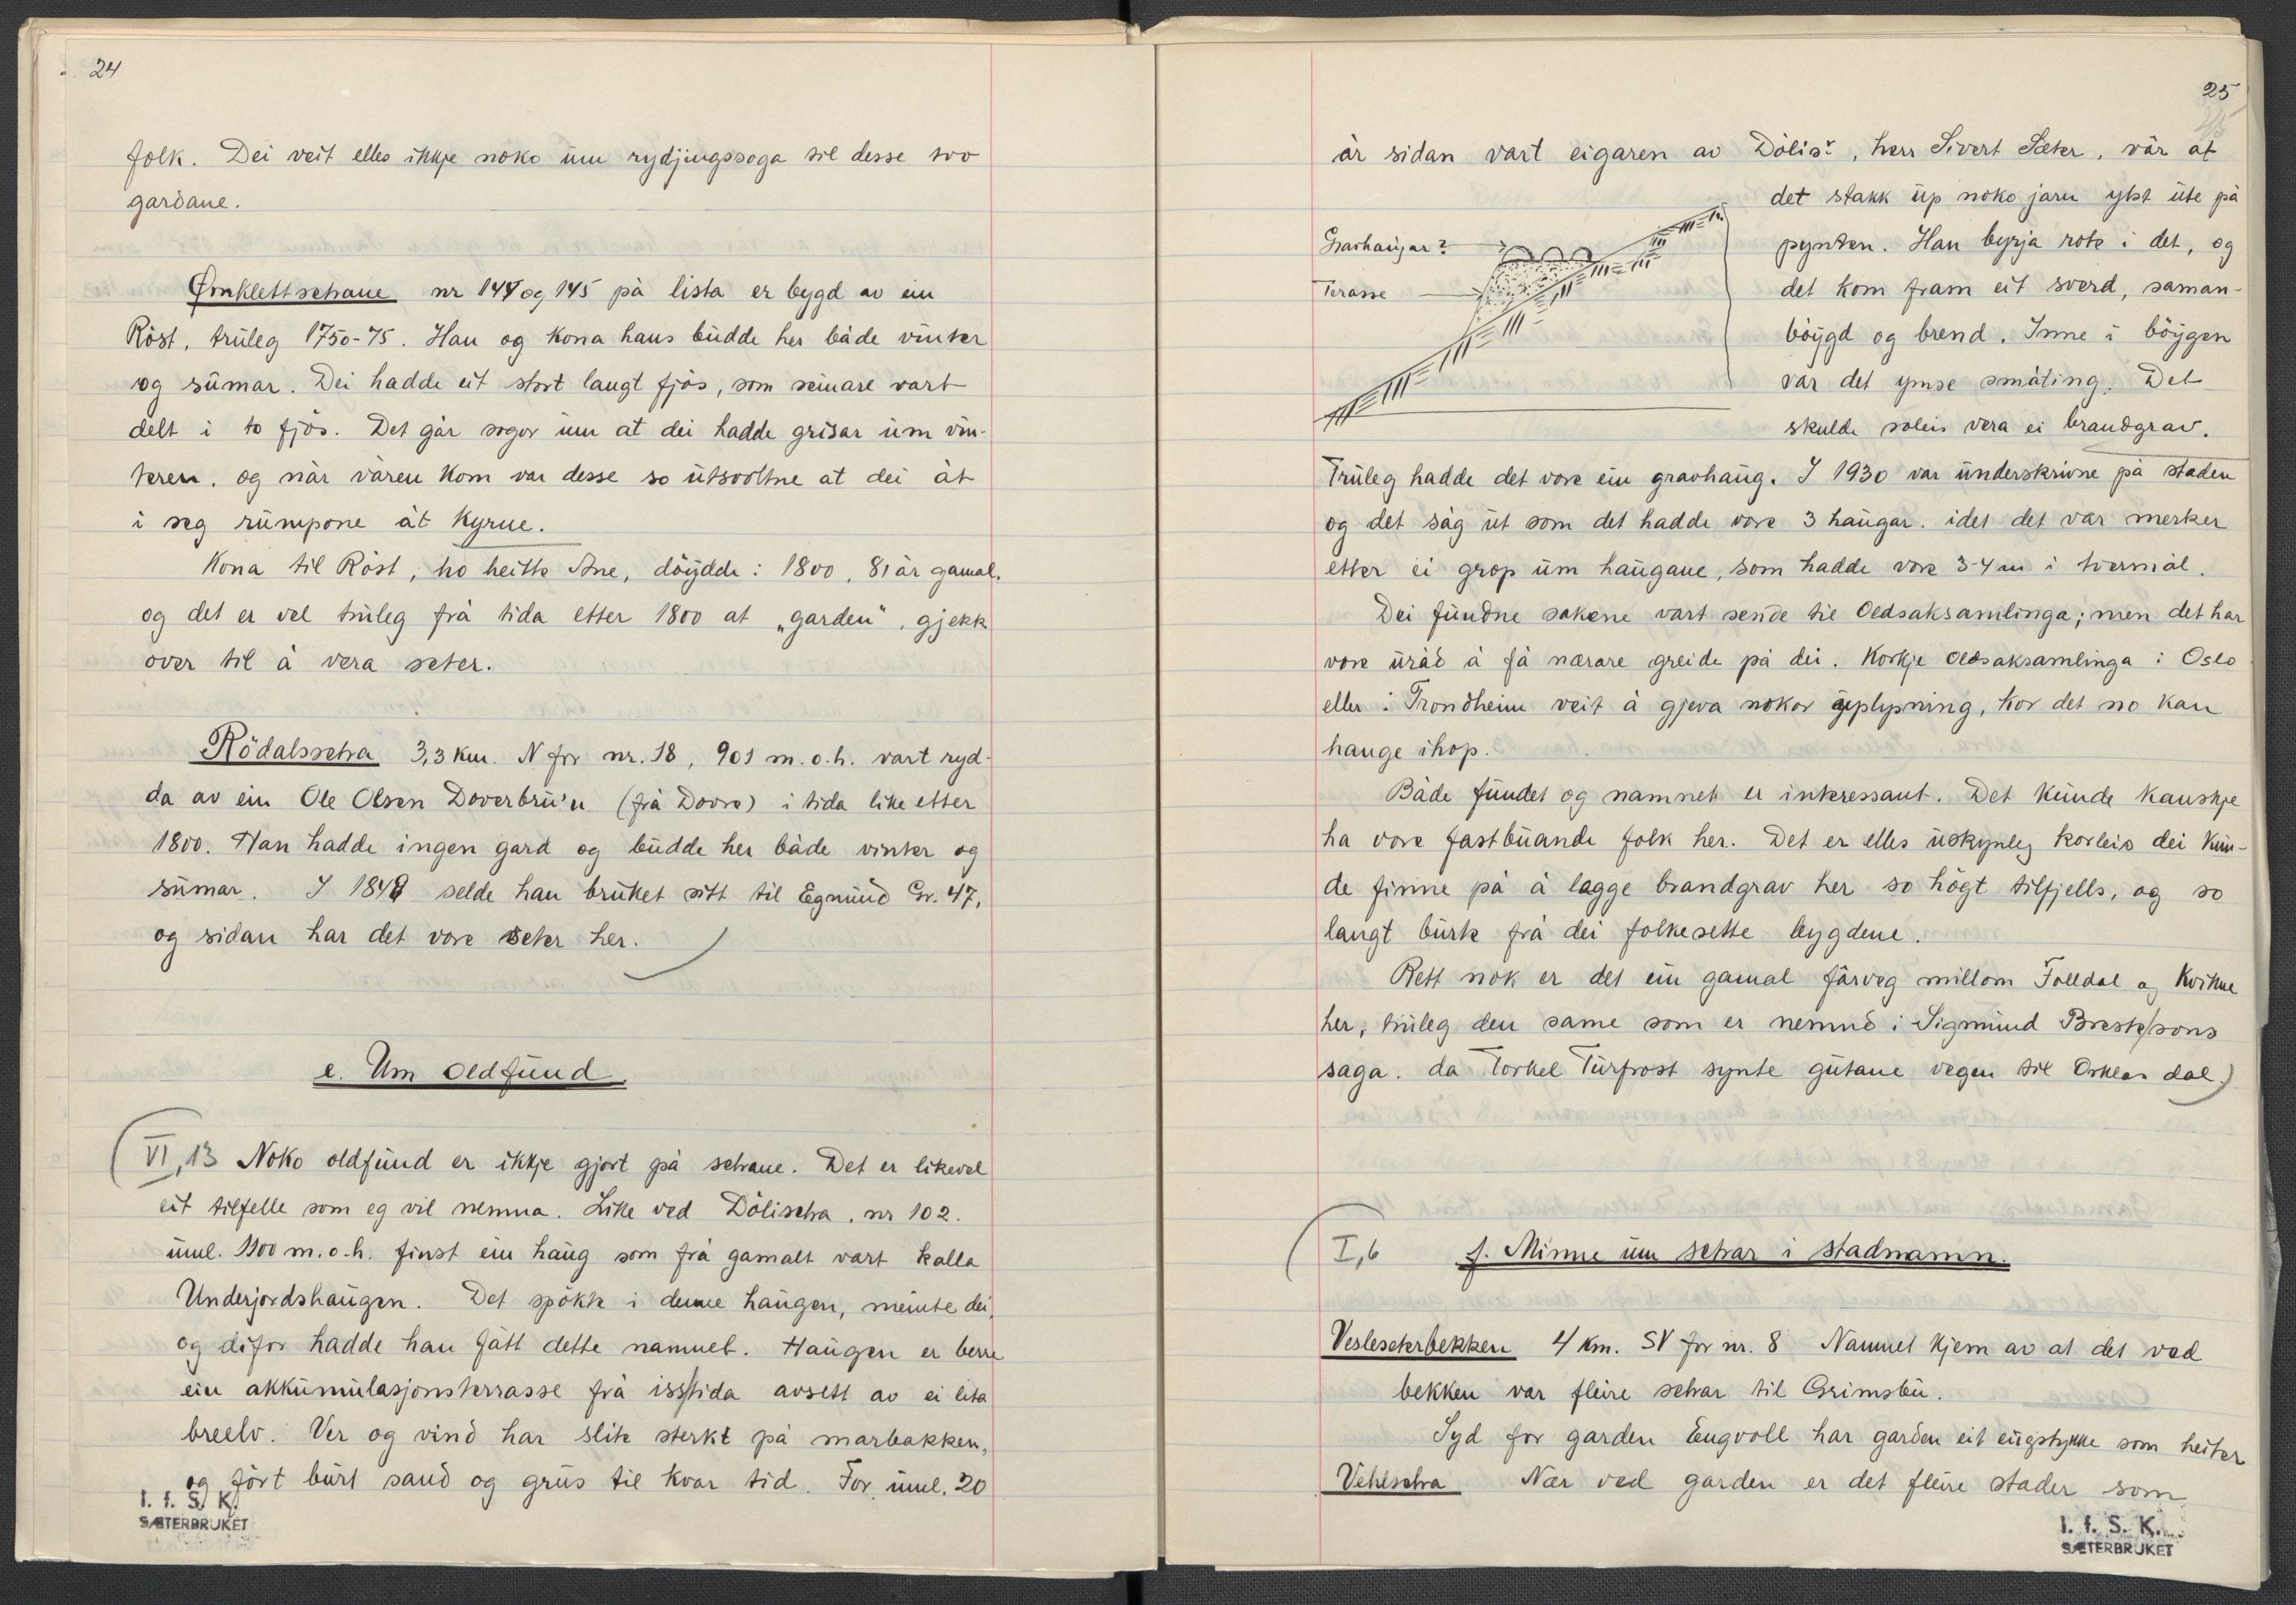 24
folk. Dei veit elles ikkje noko um rydjingssoga til desse tvo
gardane.
Örnklettsetrane nr 144 og 145 på lista er bygd av ein
Röst, truleg 1750-75. Han og kona hans budde her både vinter
og sumar. Dei hadde eit stort langt fjös, som seinare vart
delt i to fjös. Det går sogor um at dei hadde grisar um vin-
teren, og når våren kom var desse so utsvoltne at dei åt
i seg rumpone åt kyrne.
Kona til Röst, ho heitte Ane, döydde i 1800, 81 år gamal,
og det er vel truleg frå tida etter 1800 at „garden", gjekk
over til å vera seter.
Rödalssetra 3,3 km. N for nr. 18, 901 m.o.h. vart ryd-
da av ein Ole Olsen Doverbru'n (frå Dovre) i tida like etter
1800. Han hadde ingen gard og budde her både vinter og
sumar. I 1848 selde han bruket sitt til Egnund Gr. 47,
og sidan har det vore seter her.
e. Um oldfund.
VI, 13 Noko oldfund er ikkje gjort på setrane. Det er likevel
eit tilfelle som eg vil nemna. Like ved Dölisetra, nr 102.
uml. 1100 m.o.h. finst ein haug som frå gamalt vart kalla
Underjordshaugen. Det spökte i denne haugen, meinte dei,
og difor hadde han fått dette namnet. Haugen er berre
ein akkumulasjonsterrasse frå isstida avsett av ei lita
breelv. Ver og vind har slite sterkt på marbakken,
og fört burt sand og grus til kvar tid. For uml. 20
I. f. S. K.
SÆTERBRUKET
25
år sidan vart eigaren av Dölisr, herr Sivert Sæter, var at
det stakk up noko jarn ytst ute på
pynten. Han byrja rote i det, og
det kom fram eit sverd, saman-
böygd og brend. Inne i böygen
var det ymse småting. Det
skulde soleis vera ei brandgrav.
Gravhaugar?
Terasse
Truleg hadde det vore ein gravhaug. I 1930 var underskrivne på staden
og det såg ut som det hadde vore 3 haugar. idet det var merker
etter ei grop um haugane, som hadde vore 3-4 m i tvermål.
Dei fundne sakene vart sende til Oldsaksamlinga; men det har
vore uråd å få nærare greide på dei. Korkje oldsaksamlinga i Oslo
eller i Trondheim veit å gjeva nokor uplysning, kor det no kan
hange ihop.
Både fundet og namnet er interessant. Det kunde kanskje
ha vore fastbuande folk her. Det er elles uskynleg korleis dei kun-
de finne på å lagge brandgrav her so högt tilfjells, og so
langt burte frå dei folkesette bygdene.
Rett nok er det ein gamal fårveg millom Folldal og Kvikne
her, truleg den same som er nemnd i Sigmund Brestessons
saga. da Torkel Turfrost synte gutane vegen til Orklas dal.
I, 6 f. Minne um setrar i stadnamn.
Vesleseterbekken 4 km. SV for nr. 8 Namnet kjem av at det ved
bekken var fleire setrar til Grimsbu.
Syd for garden Engvoll har garden eit engstykke som heiter
Vehlsetra Nær ved garden er det fleire stader som
I. f. S. K.
SÆTERBRUKET